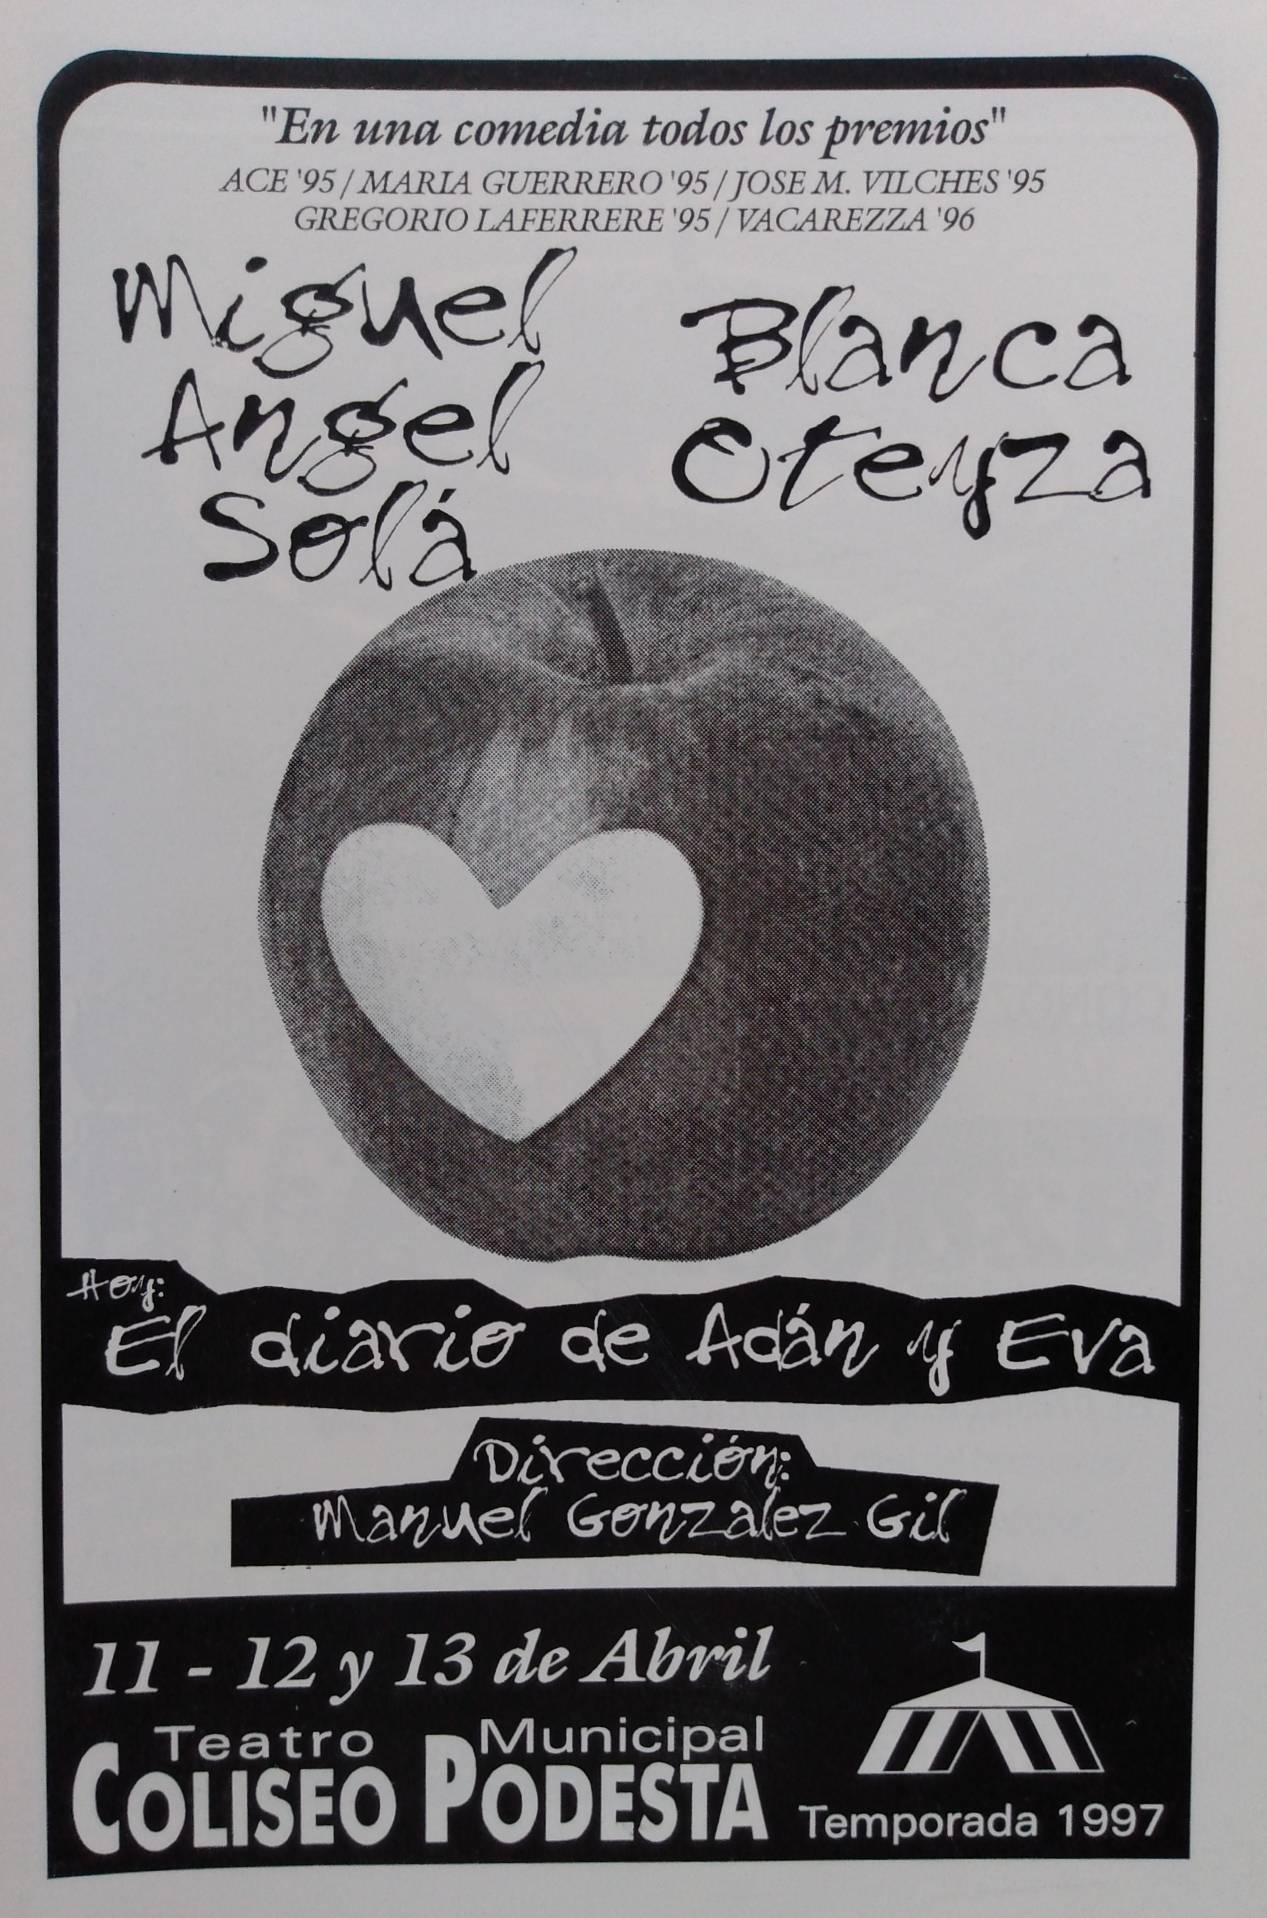 "En una comedia todos los premios"
ACE '95 / MARIA GUERRERO '95 / JOSE M. VILCHES '95
GREGORIO LAFERRERE '95 / VACAREZZA '96
Miguel
Angel
Solá
Blanca
Oteyza
Hoy:
El diario de Adán y Eva
Dirección:
Manuel Gonzalez Gil
11 - 12 y 13 de Abril
Teatro Municipal
COLISEO PODESTA
Temporada 1997